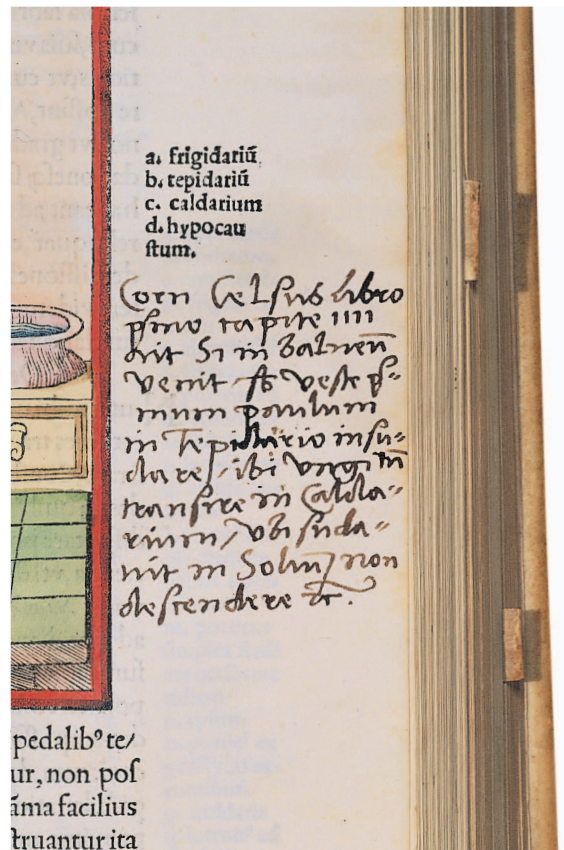 a. frigidariū
b. tepidariū
c. caldarium
d. hypocau
stum.
Corn Celsus libro
pͥmo capite iiii
ait Si in Balneū
venit sub veste pͥ=
mum paulum
in Tepidario insu=
dare, ibi vngi tū
transire in Calda=
rium, vbi suda=
uit in Soliuʒ non
descendere ⁊c.
pedalibꝰ te/
ur, non poſ
āma facilius
ſtruantur ita